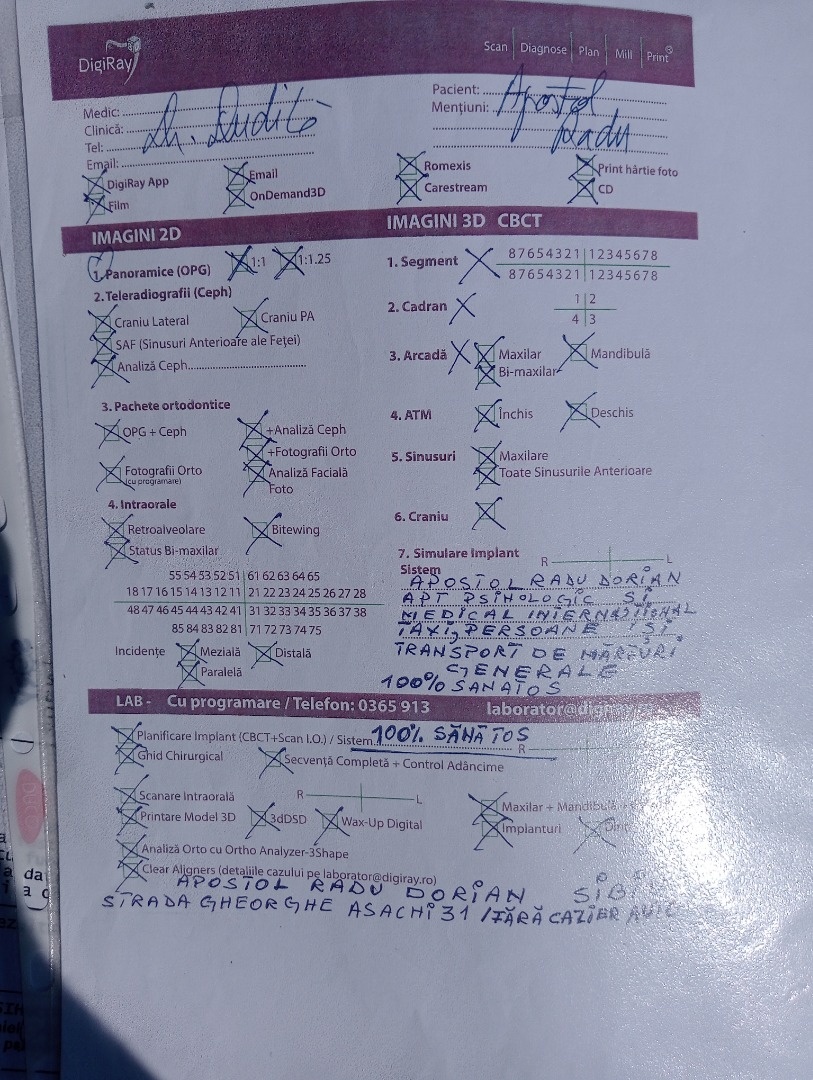 DigiRay
Scan | Diagnose | Plan | Mill | Print®
Medic: Dr. Dudită
Clinică:
Tel:
Email:
Pacient: Apostol
Mențiuni: Radu
DigiRay App Email Romexis Print hârtie foto
Film OnDemand3D Carestream CD
IMAGINI 2D
1. Panoramice (OPG) 1:1 1:1.25
2. Teleradiografii (Ceph)
Craniu Lateral Craniu PA
SAF (Sinusuri Anterioare ale Feței)
Analiză Ceph
3. Pachete ortodontice
OPG + Ceph +Analiză Ceph
+Fotografii Orto
Fotografii Orto Analiză Facială
(cu programare) Foto
4. Intraorale
Retroalveolare Bitewing
Status Bi-maxilar
55 54 53 52 51 | 61 62 63 64 65
18 17 16 15 14 13 12 11 | 21 22 23 24 25 26 27 28
48 47 46 45 44 43 42 41 | 31 32 33 34 35 36 37 38
85 84 83 82 81 | 71 72 73 74 75
Incidențe Mezială Distală
Paralelă
IMAGINI 3D CBCT
1. Segment 87654321 | 12345678
87654321 | 12345678
2. Cadran 1 | 2
4 | 3
3. Arcadă Maxilar Mandibulă
Bi-maxilar
4. ATM Închis Deschis
5. Sinusuri Maxilare
Toate Sinusurile Anterioare
6. Craniu
7. Simulare Implant R L
Sistem
APOSTOL RADU DORIAN
APT PSIHOLOGIC ȘI
MEDICAL INTERNAȚIONAL
TAXI, PERSOANE ȘI
TRANSPORT DE MĂRFURI
GENERALE
100% SANATOS
LAB - Cu programare / Telefon: 0365 913 laborator@digiray
Planificare Implant (CBCT+Scan I.O.) / Sistem 100% SĂNĂTOS R
Ghid Chirurgical Secvență Completă + Control Adâncime
Scanare Intraorală R L Maxilar + Mandibulă +
Printare Model 3D 3dDSD Wax-Up Digital Implanturi
Analiză Orto cu Ortho Analyzer-3Shape
Clear Aligners (detaliile cazului pe laborator@digiray.ro)
APOSTOL RADU DORIAN
STRADA GHEORGHE ASACHI 31 / FĂRĂ CAZIER